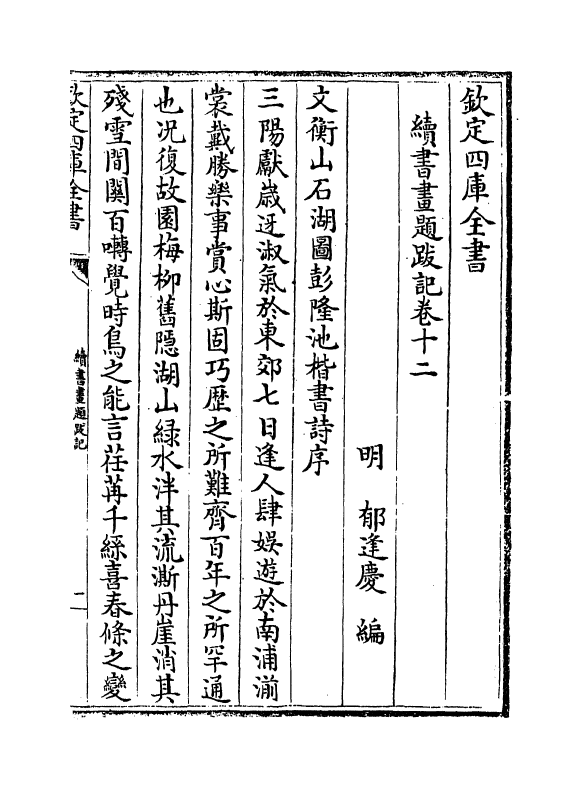 欽定四庫全書
續書畫題跋記卷十二
明　郁逢慶　編
文衡山石湖圖彭隆池楷書詩序
三陽獻歲迓淑氣於東郊七日逢人肆娛遊於南浦湔
裳戴勝樂事賞心斯固巧歷之所難齊百年之所罕通
也況復故園梅柳舊隱湖山緑水泮其流澌丹崖消其
殘雪間關百囀覺時鳥之能言荏苒千綵喜春條之變
欽定四庫全書
續書畫題跋記